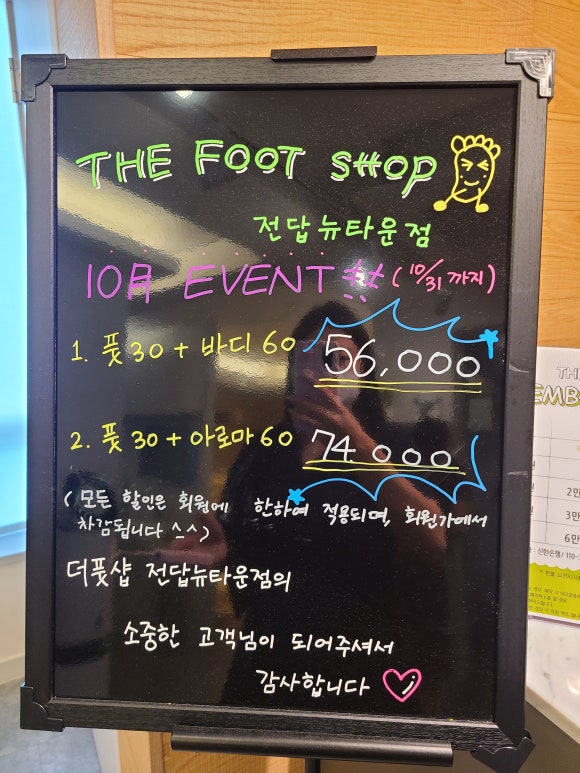 THE FOOT SHOP
전답뉴타운점
10月 EVENT!! (10/31 까지)
1. 풋30 + 바디 60 56,000
2. 풋30 + 아로마 60 74,000
( 모든 할인은 회원에 한하여 적용되며, 회원가에서
차감됩니다 ^.^ )
더풋샵 전답뉴타운점의
소중한 고객님이 되어주셔서
감사합니다
TH
EMB
2만
3만
6만
: 신한은행/ 110-